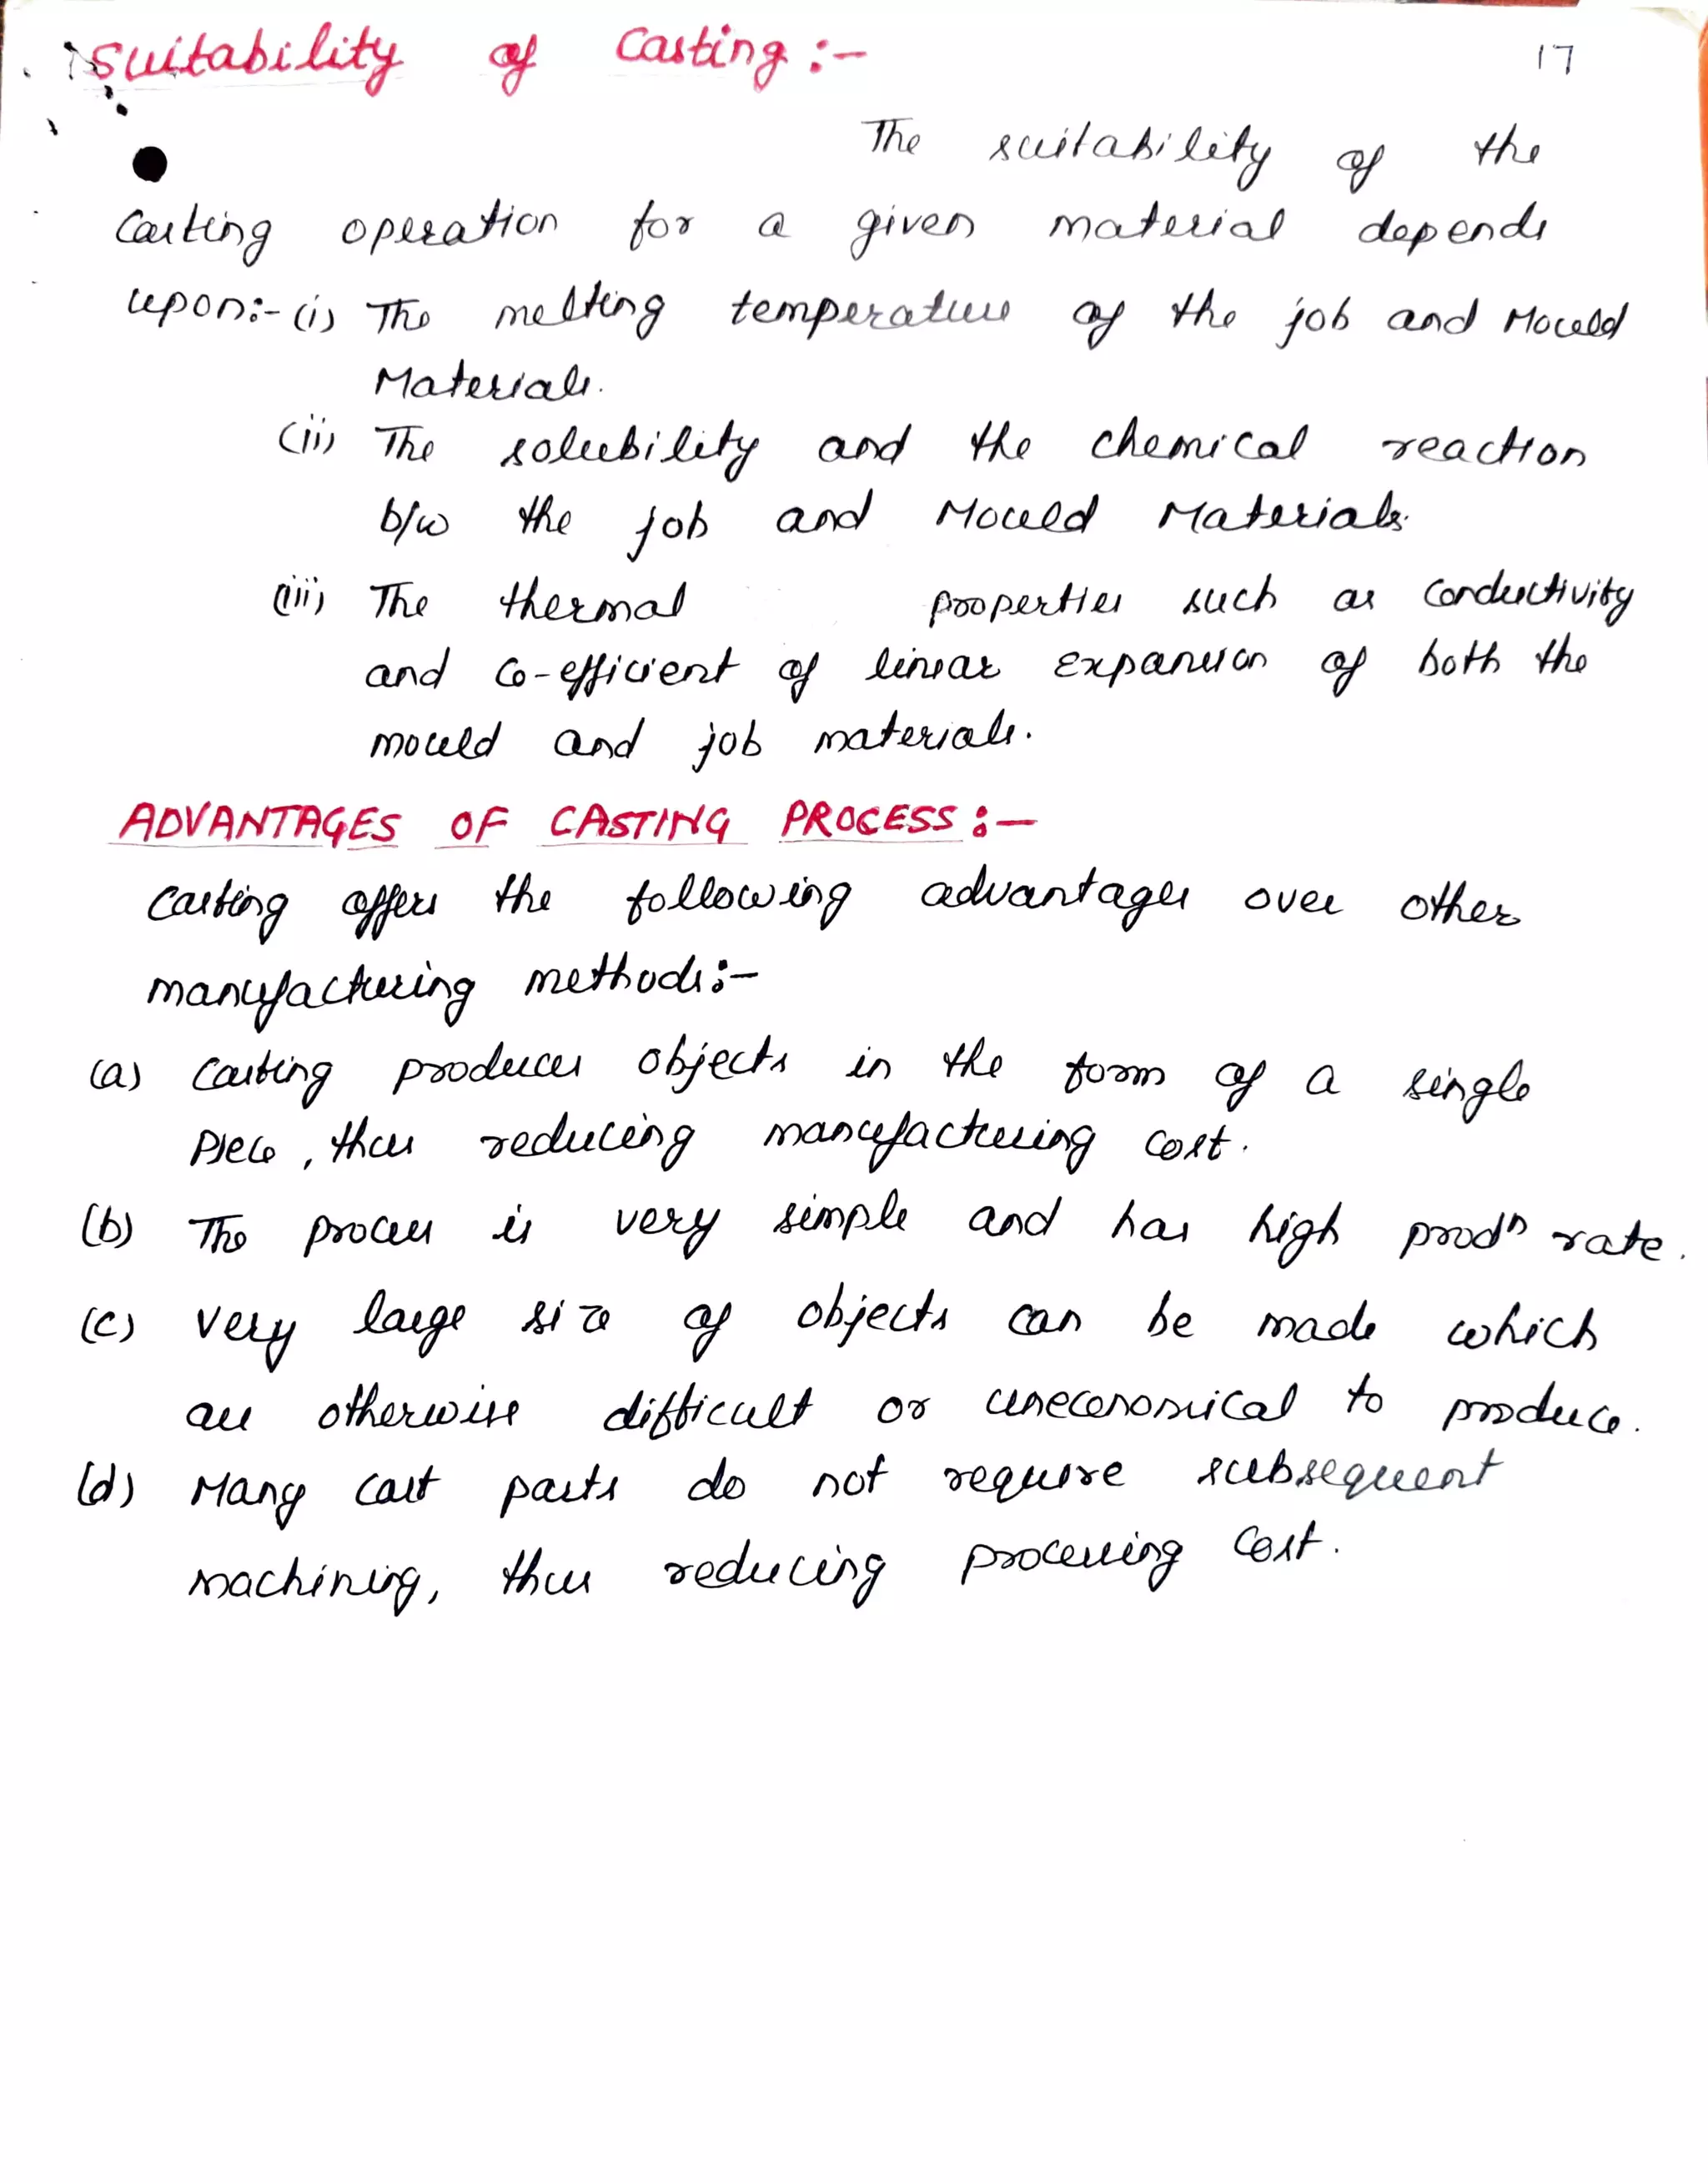 Suitability of Casting :-
17
The suitability of the
Casting operation for a given material depends
upon:- (i) The melting temperature of the job and Mould
Materials.
(ii) The solubility and the chemical reaction
b/w the job and Mould Materials.
(iii) The thermal properties such as Conductivity
and Co-efficient of linear Expansion of both the
mould and job materials.
ADVANTAGES OF CASTING PROCESS :-
Casting offers the following advantages over other
manufacturing methods:-
(a) Casting produces objects in the form of a single
Piece, thus reducing manufacturing cost.
(b) The process is very simple and has high prodn rate.
(c) Very large size of objects can be made which
are otherwise difficult or uneconomical to produce.
(d) Many cast parts do not require subsequent
machining, thus reducing processing Cost.